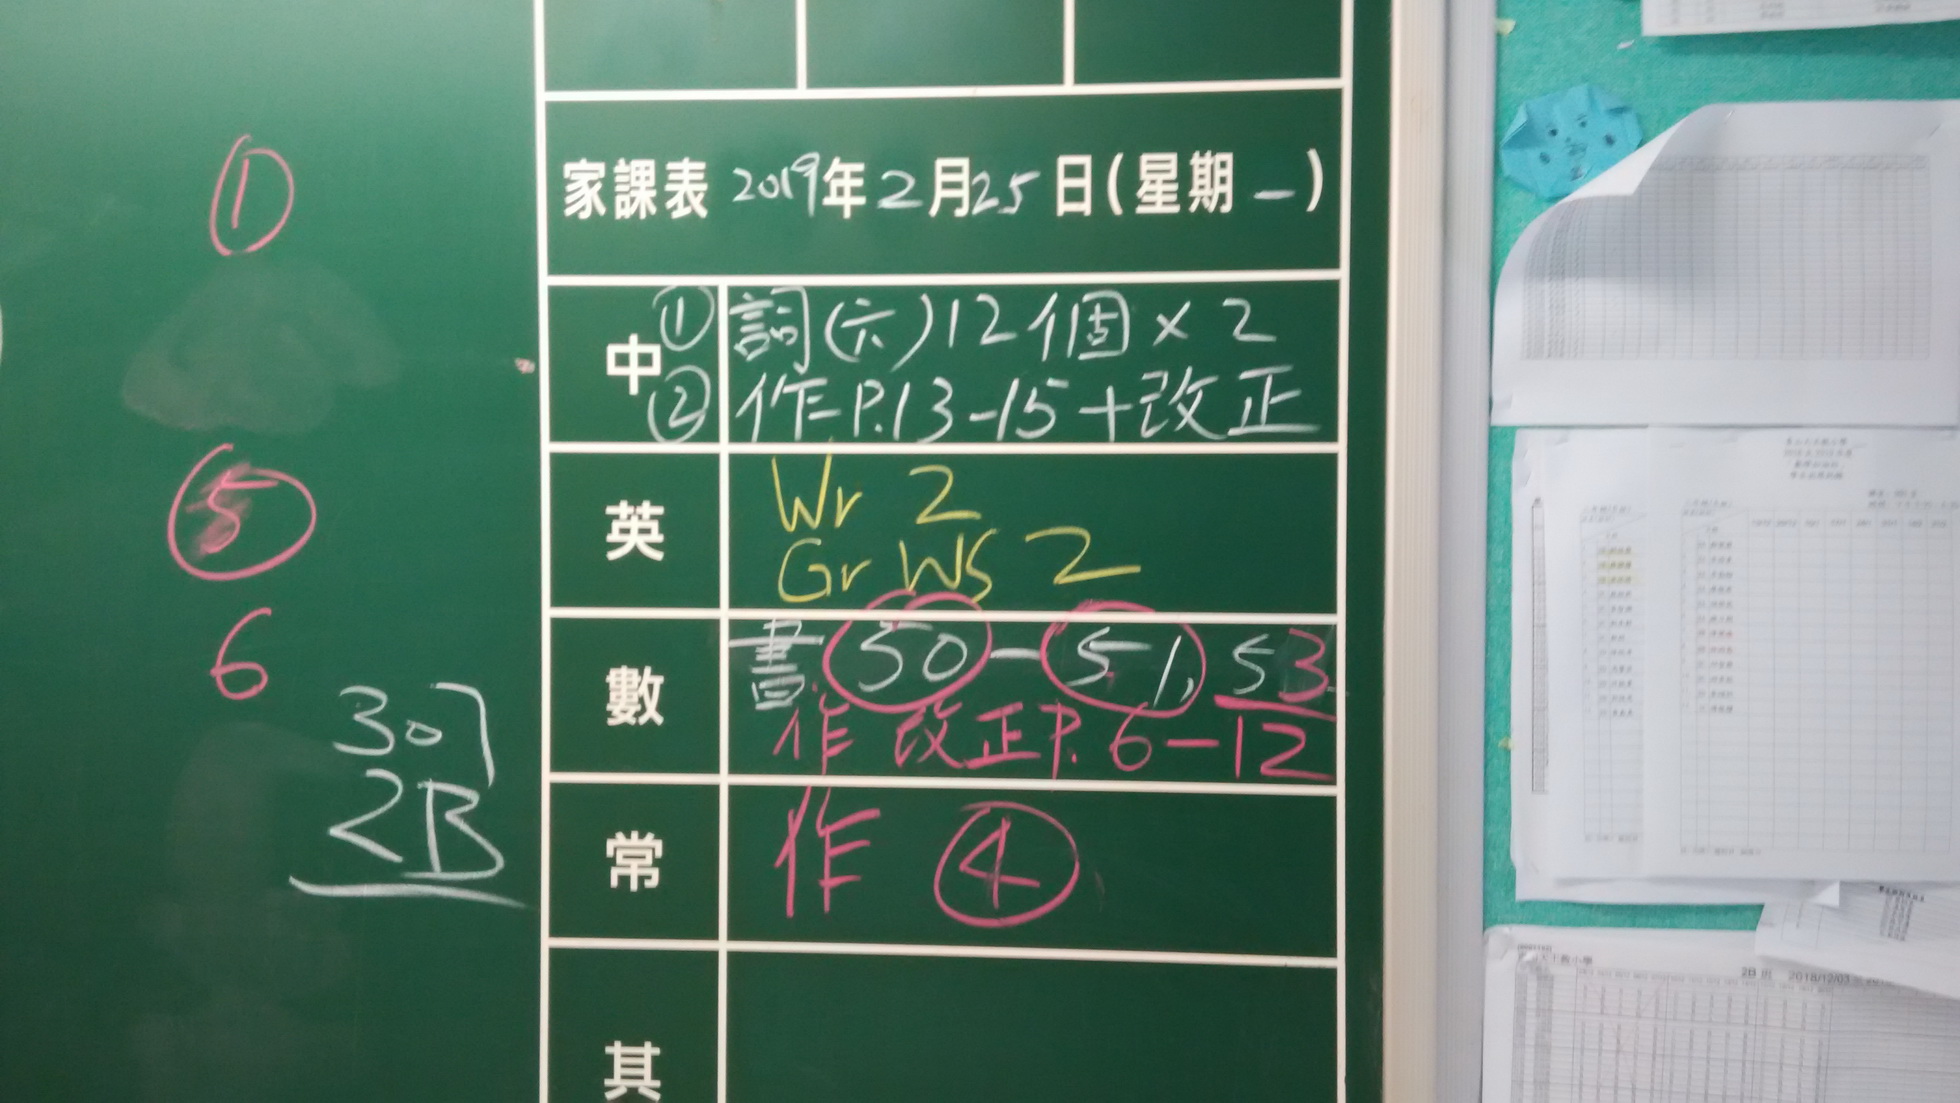 ①
⑤
6
307
2B
家課表 2019年2月25日(星期一)
中
① 詞(六)12個×2
② 作P.13-15+改正
英
Wr 2
Gr WS 2
數
書 50-51, 53
作 改正P. 6-12
常
作 ④
其
2B 班 2018/12/03